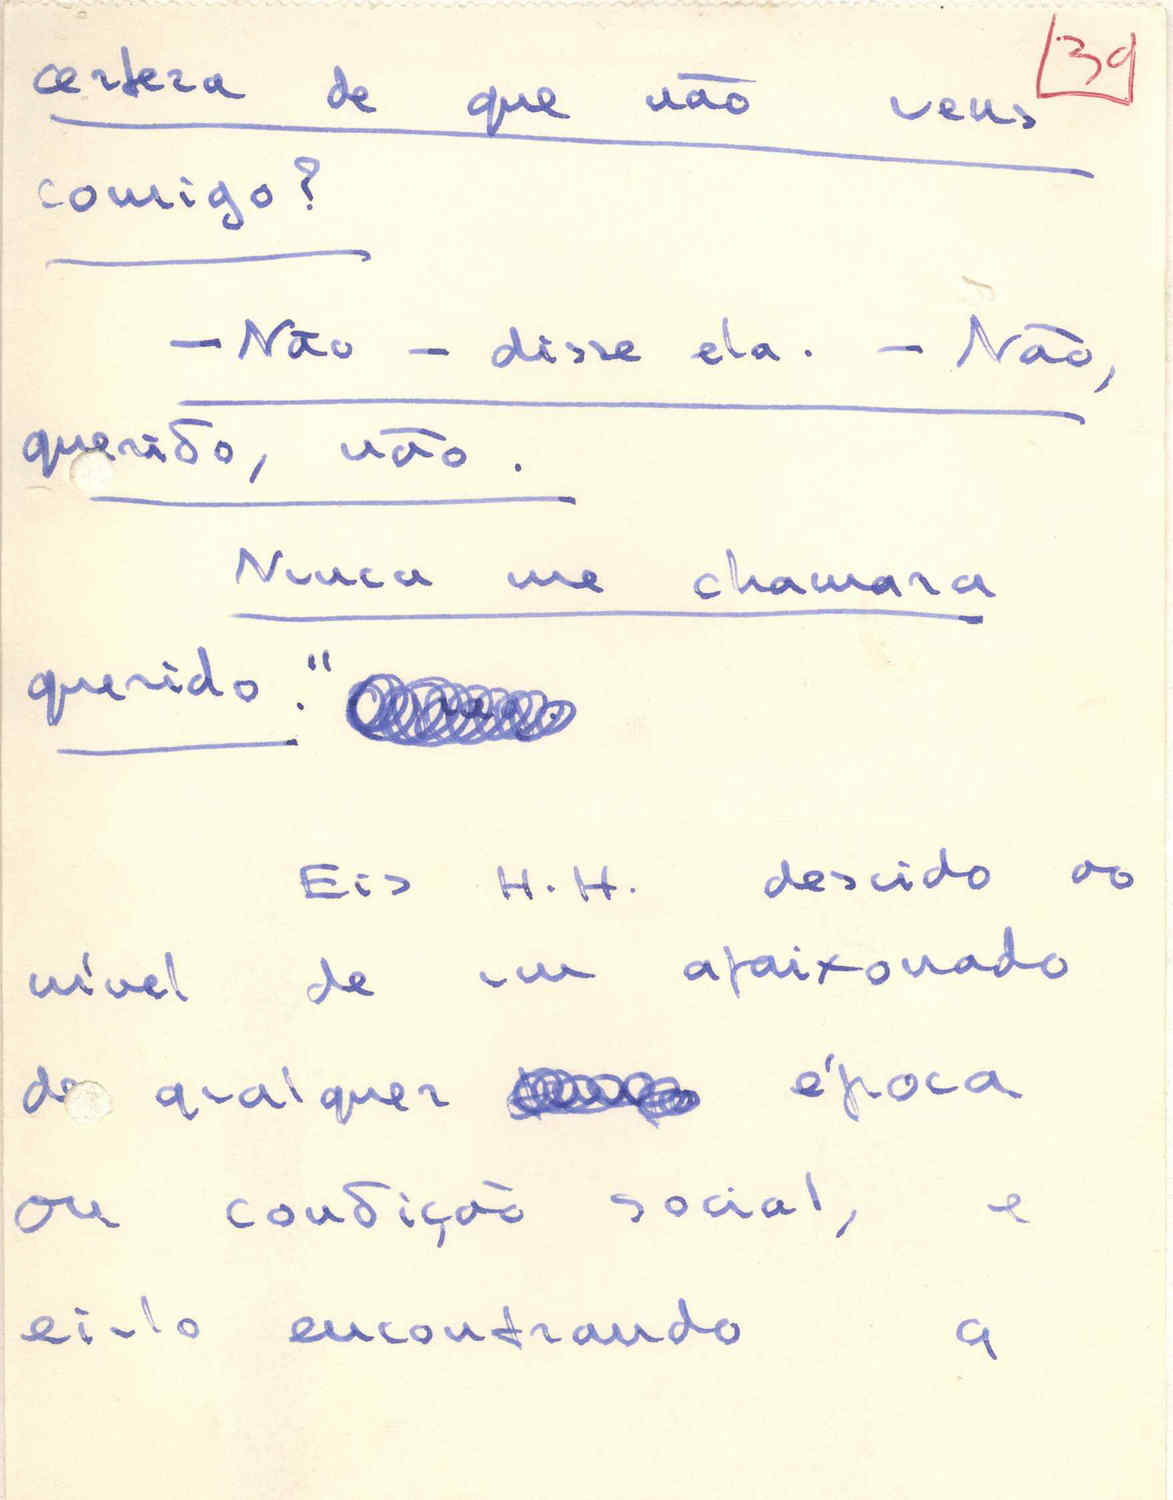 39
certeza de que não vens
comigo?
- Não - disse ela. - Não,
querido, não.
Nunca me chamara
querido."
Eis H.H. descido ao
nível de um apaixonado
de qualquer época
ou condição social, e
ei-lo encontrando a